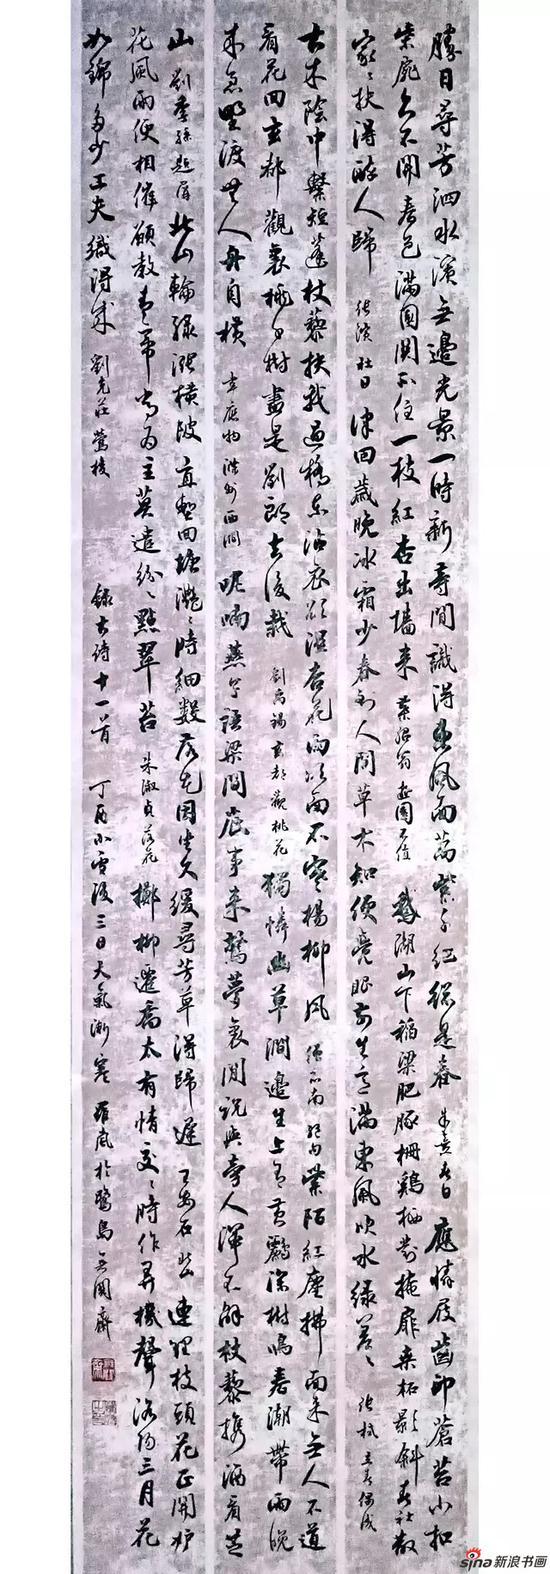 勝日尋芳泗水濱無邊光景一時新等閒識得東風面萬紫千紅總是春 朱熹春日 應憐屐齒印蒼苔小扣
柴扉久不開春色滿園關不住一枝紅杏出墻來 葉紹翁遊園不值 鵝湖山下稻粱肥豚柵鷄栖對掩扉桑柘影斜春社散
家〻扶得醉人歸 張演社日 律回歲晚冰霜少春到人間草木知便覺眼前生意滿東風吹水綠差〻 張栻立春偶成
古木陰中繫短篷杖藜扶我過橋東沾衣欲濕杏花雨吹面不寒楊柳風 僧志南絕句 紫陌紅塵拂面來無人不道
看花回玄都觀裏桃千樹盡是劉郎去後栽 劉禹錫玄都觀桃花 獨憐幽草澗邊生上有黃鸝深樹鳴春潮帶雨晚
來急野渡無人舟自橫 韋應物滁州西澗 呢喃燕子語梁間底事來驚夢裏閒說與旁人渾不解杖藜攜酒看芝
山 劉季孫題屏 北山輸綠漲橫陂直塹回塘灧〻時細數落花因坐久緩尋芳草得歸遲 王安石北山 連理枝頭花正開妒
花風雨便相催願教青帝常為主莫遣紛〻點翠苔 朱淑貞落花 擲柳遷喬太有情交〻時作弄機聲洛陽三月花
如錦多少工夫織得成 劉克莊鶯梭 錄古詩十一首 丁酉小雪後三日天氣漸寒 於鷺島
sina新浪书画